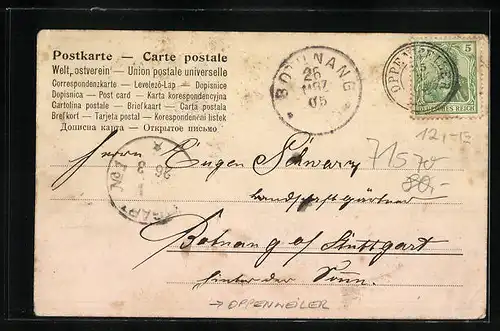 Postkarte — Carte postale
Weltpostverein — Union postale universelle
Correspondenzkarte — Levelező-Lap — Dopisnice
Dopisnica — Post card — Karta korespondencyjna
Cartolina postale — Briefkaart — Carta postala
Brefkort — Tarjeta postal — Korespondenční lístek
Дописна карта — Открытое письмо
BOTNANG
26
MRZ
05
OPPENWEILER
5
DEUTSCHES REICH
12,-
Herrn Eugen Schwarz
Landschaftsgärtner
Botnang o/ Stuttgart
hinter der Sonne.
STUTTGART
No 1
26 3
→ OPPENWEILER
80,-